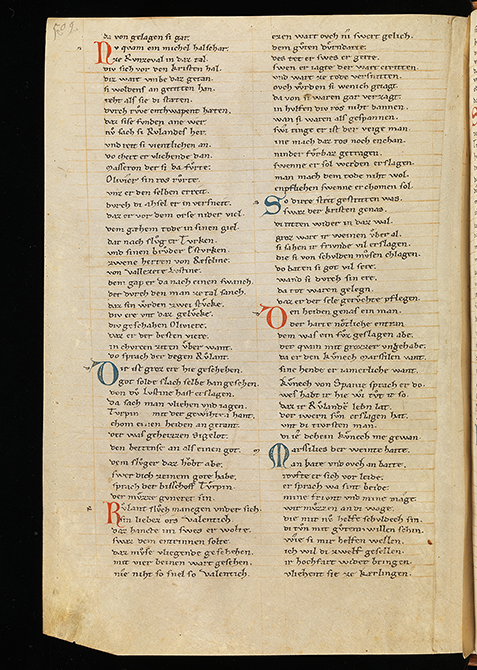 da von gelagen si gar.
Nv quam ein michel halschar.
ze Runzeval in daz tal.
div sich vor den kristen hal.
daz wart vmbe daz getan.
si wolden an geritten han.
reht als sie di staten.
durch rwe enthwapent haten.
daz sise funden ane wer.
nv sach si Rvlandes her.
vnd reit si vientlichen an.
do theit er vliehende dan.
Olivier sin ros rvrte.
vnz er den selben erreit.
durch di ahsel er in versneit.
daz er vor dem orse nider viel.
dem gæhem tode in sinen giel.
dar nach slvg er Tvrken.
vnd sinen brvder Esturken.
zwene herren von
von
dem gap er da nach einen swanch.
der durch den man ze tal sanch.
daz sin wrden zwei stvcke.
div ere vnt daz gelvcke.
div geschahen Oliviere.
daz er der besten viere.
in chvrzen ziten vber want.
do sprach der degen Rvlant.
Dir ist groz ere hie geschehen.
got solde slach selbe han gesehen.
den dv Ivstine hast erslagen.
da sach man vliehen vnd iagen.
Turpin mit der gewihten hant.
chom einen heiden an gerant.
der was geheizzen Sigelot.
den bettens an als einen got.
dem slvger daz hobt abe.
swer dich zeinem gote habe.
sprach der bisschof Tvrpin.
der mvzze gvneret sin.
Rvlant slvch manegen vnder sich.
sin lieber ors Valentich.
daz hancte im swes er wolte.
swaz dem entrinnen solte.
daz mvse vliegende geschehen.
mit vier beinen wart gesehen.
nie niht so snel so Valentich.
ezen wart ovch nv swert gelich.
dem gvten dvrndarte.
des tet er swes er gerte.
swen er iagte der wart erriten.
vnd wart ze tode versniten.
ovch wrden si wenich geiagt.
da von si waren gar verzagt.
in hvlfen div ros niht dannen.
wan si waren als gespannen.
swa einge er ist der veige man.
ine mach daz ros noch enhan.
ninder fvrbaz getragen.
swenne er sol werden erslagen.
man mach dem tode niht wol.
enpfliehen swenne er chomen sol.
So dirre strit gestriten was.
swaz der kristen genas.
di riten wider in daz wal.
groz wart ir weinen vber al.
si sahen ir frivnde vil erslagen.
die si von schvlden mvsen chlagen.
do baten si got vil sere.
wand si durch sin ere.
da tot waren gelegn.
daz er der sele gervchte pflegen.
Den heiden genas ein man.
der harte nôtliche entran.
dem was ein fvz geslagen abe.
der quam mit grozzer vngehabe.
da er den kvnech Marsilien vant.
sine hende er iamerliche want.
kvnech von Spanig sprach er do.
wes habt ir hie wi tvt ir so.
daz ir Rvlanden lebn lat.
der iwern svn erslagen hat.
vnt di tivrsten man.
di ie dehein kvnech me gewan.
Marsilies der weinte harte.
man hare vnd ovch an barte.
rovfte er sich vor leide.
er sprach wa sint beide.
mine frivnt vnd mine mage.
wir mvzzen an di wage.
die mit nv helfe schvldech sin.
di tvn mir gvten willen schin.
wie si mir helfen wellen.
ich wil di zwelf gesellen.
ir hochfart wider bringen.
vliehent sie ze kærlingen.